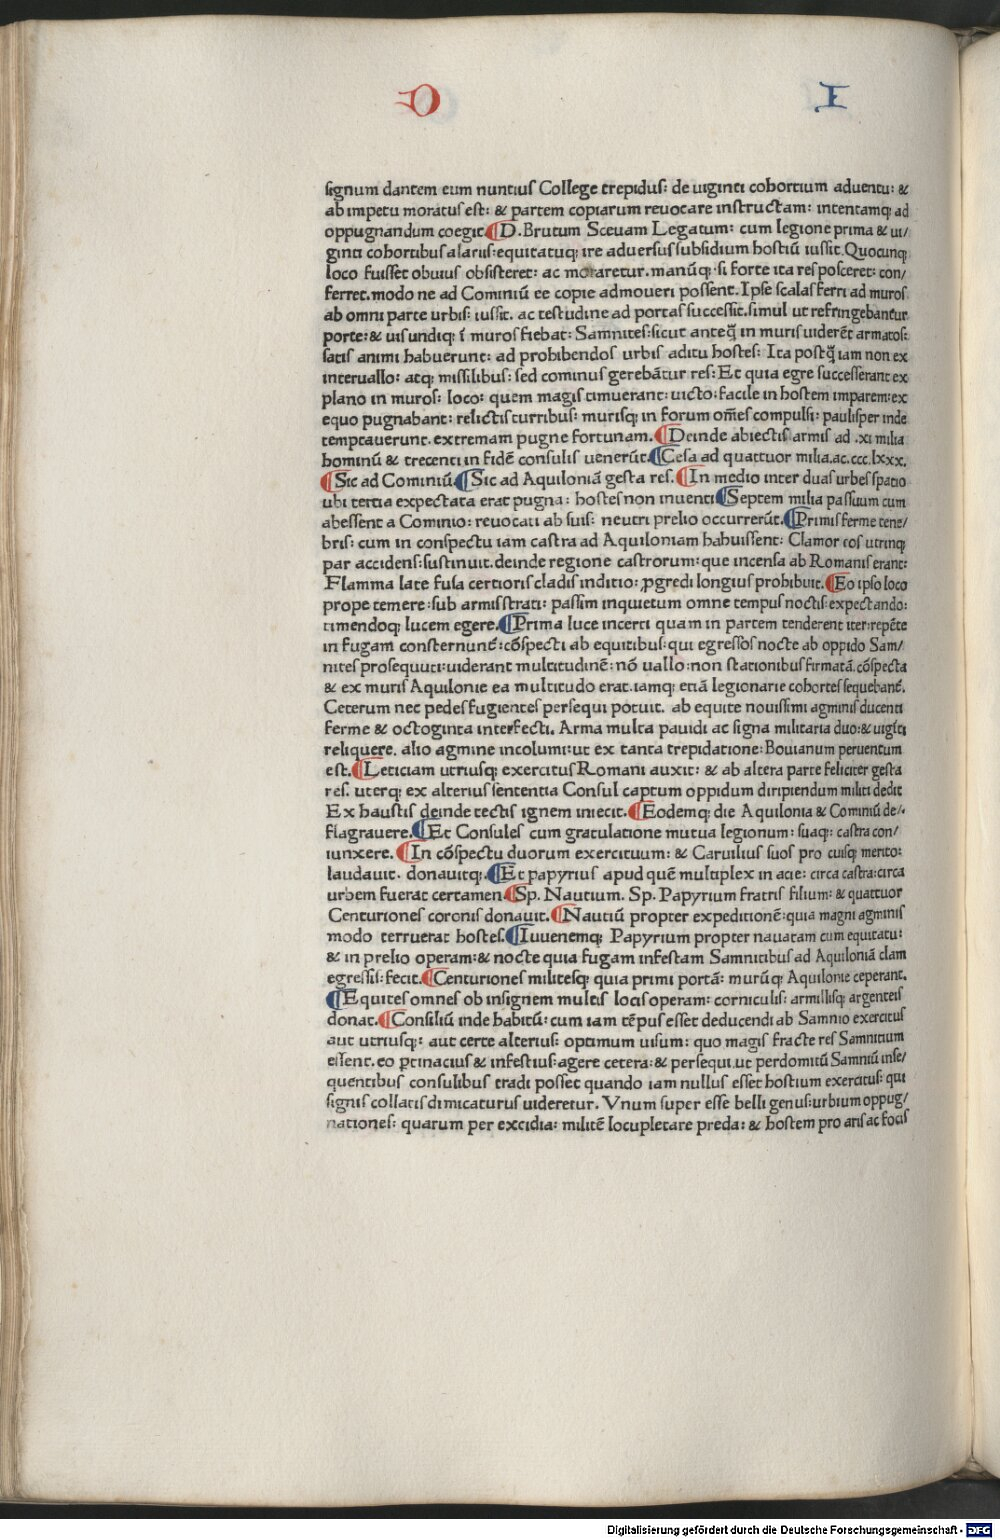 D I
signum dantem eum nuntius College trepidus: de uiginti cohortium aduentu: &
ab impetu moratus est: & partem copiarum reuocare instructam: intentamq; ad
oppugnandum coegit. ¶D. Brutum Sceuam Legatum: cum legione prima & ui/
ginti cohortibus alariis: equitatuq; ire aduersus subsidium hostiū iussit. Quocunq;
loco fuisset obuius obsisteret: ac moraretur. manūq; si forte ita res posceret: con/
ferret. modo ne ad Cominiū ee copie admoueri possent. Ipse scalas ferri ad muros
ab omni parte urbis: iussit. ac testudine ad portas successit. simul ut refringebantur
porte: & uis undiq; ī muros fiebat: Samnites: sicut anteq̄ in muris uiderēt armatos:
satis animi habuerunt: ad prohibendos urbis aditu hostes: Ita postq̄ iam non ex
interuallo: atq; missilibus: sed cominus gerebātur res: Et quia egre successerant ex
plano in muros: loco: quem magis timuerant: uicto: facile in hostem imparem: ex
equo pugnabant: relictis turribus: murisq; in forum om̄es compulsi: paulisper inde
temptauerunt. extremam pugne fortunam. ¶Deinde abiectis armis ad .xi milia
hominū & trecenti in fidē consulis uenerūt. ¶Cesa ad quattuor milia. ac. ccc. lxxx.
¶Sic ad Cominiū. ¶Sic ad Aquiloniā gesta res. ¶In medio inter duas urbes spatio
ubi tertia expectata erat pugna: hostes non inuenti ¶Septem milia passuum cum
abessent a Cominio: reuocati ab suis: neutri prelio occurrerūt. ¶Primis ferme tene/
bris: cum in conspectu iam castra ad Aquiloniam habuissent: Clamor eos utrinq;
par accidens: sustinuit. deinde regione castrorum: que incensa ab Romanis erant:
Flamma late fusa certioris cladis inditio: ꝓgredi longius prohibuit. ¶Eo ipso loco
prope temere: sub armis strati: passim inquietum omne tempus noctis: expectando:
timendoq; lucem egere. ¶Prima luce incerti quam in partem tenderent iter: repēte
in fugam consternunt̄: cōspecti ab equitibus: qui egressos nocte ab oppido Sam/
nites prosequuti: uiderant multitudinē: nō uallo: non stationibus firmatā. cōspecta
& ex muris Aquilonie ea multitudo erat. iamq; etiā legionarie cohortes sequebant̄.
Ceterum nec pedes fugientes persequi potuit. ab equite nouissimi agminis ducenti
ferme & octoginta interfecti. Arma multa pauidi ac signa militaria duo: & uigīti
reliquere. alio agmine incolumi: ut ex tanta trepidatione: Bouianum peruentum
est. ¶Leticiam utriusq; exercitus Romani auxit: & ab altera parte feliciter gesta
res. uterq; ex alterius sententia Consul captum oppidum diripiendum militi dedit
Ex haustis deinde tectis ignem iniecit. ¶Eodemq; die Aquilonia & Cominiū de/.
flagrauere. ¶Et Consules cum gratulatione mutua legionum: suaq: castra con/
iunxere. ¶In cōspectu duorum exercituum: & Caruilius suos pro cuisq; merito:
laudauit. donauitq;. ¶Et papyrius apud quē multiplex in acie: circa castra: circa
urbem fuerat certamen ¶Sp. Nautium. Sp. Papyrium fratris filium: & quattuor
Centuriones coronis donauit. ¶Nautiū propter expeditionē: quia magni agminis
modo terruerat hostes. ¶Iuuenemq; Papyrium propter nauatam cum equitatu:
& in prelio operam: & nocte quia fugam infestam Samnitibus ad Aquiloniā clam
egressis: fecit. ¶Centuriones militesq; quia primi portā: murūq; Aquilonie ceperant.
¶Equites omnes ob insignem multis locis operam: corniculis: armillisq; argenteis
donat. ¶Consiliū inde habitū: cum iam tēpus esset deducendi ab Samnio exercitus
aut utriusq;: aut certe alterius: optimum uisum: quo magis fracte res Samnitium
essent. eo ꝑtinacius & infestius: agere cetera: & persequi. ut perdomitū Samniū inse/
quentibus consulibus tradi posset quando iam nullus esset hostium exercitus: qui
signis collatis dimicaturus uideretur. Vnum super esse belli genus: urbium oppug/
nationes: quarum per excidia: militē locupletare preda: & hostem pro aris ac focis
Digitalisierung gefördert durch die Deutsche Forschungsgemeinschaft - DFG